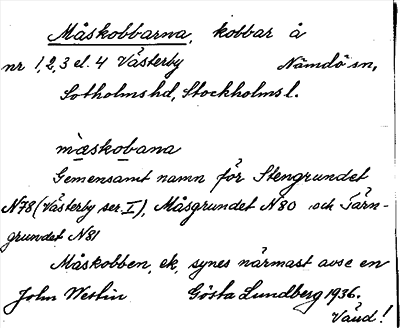 Måskobbarna, kobbar å
nr 1, 2, 3 el. 4 Västerby Nämdö sn,
Sotholms hd, Stockholms l.
mæskobana
Gemensamt namn för Stengrundet
N78 (Västerby ser. I), Måsgrundet N80 och Tärn-
grundet N81
Måskobben, ek, synes närmast avse en
John Westin Gösta Lundberg 1936.
Vänd!